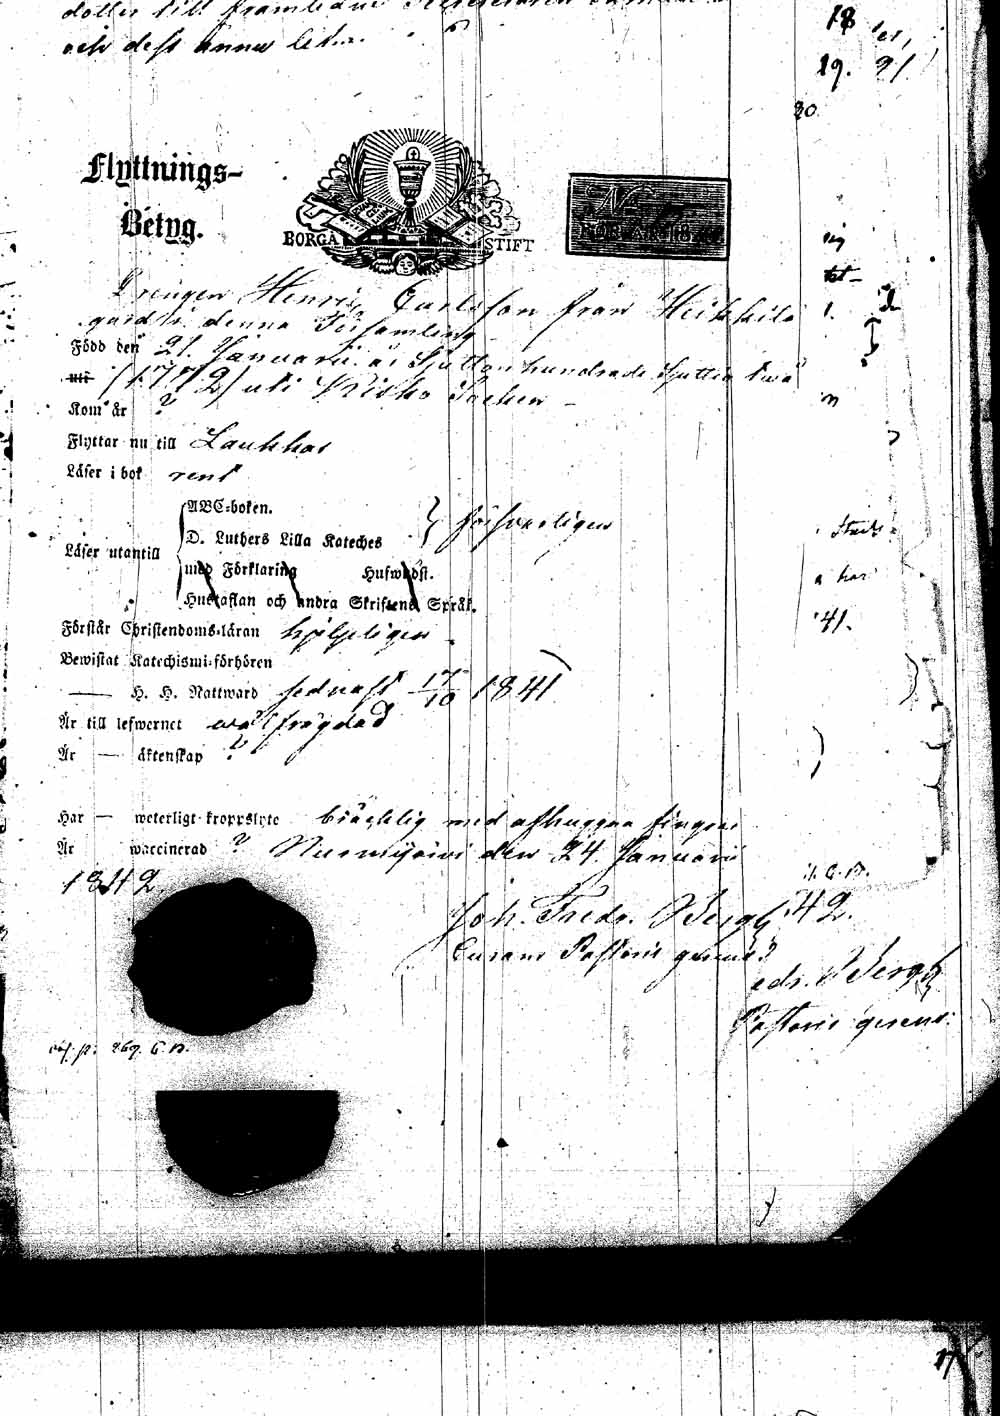 dotter till framledne
och dess ännu
18
19. 21
20
Flyttnings-
Betyg.
BORGÅ STIFT
No
FÖR ÅR 18
Drengen Henric Carlsson från Heikkilä
gård i denna Församling
Född den 21 Januarii år Sjuttonhundrade Sjuttio två
uti (1772) uti Wichtis Socken
Kom år ?
Flyttar nu till Laukkas
Läser i bok rent
Läser utantill
ABC-boken.
D. Luthers Lilla Kateches
med Förklaring Hufwudst.
Hustaflan och andra Skriftens Språk.
försvarligen
Förstår Christendoms-läran hjelpeligen
41.
Bewistat Katechismi-förhören
— H. H. Nattward sednast 17/10 1841
Är till lefwernet wälfrägdad
Är — äktenskap ?
Har — weterligt kroppslyte bräcklig med afhuggna fingrar
Är waccinerad ? Nurmijärvi den 24 Januarii
1842.
Joh. Fredr. Bergh
42.
Curam Pastoris gerens
edr. Bergh
Pastoris gerens.
p. 269. C. B.
17